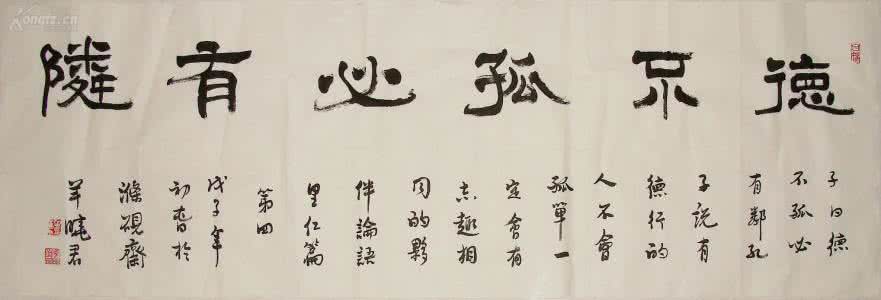 德不孤必有隣
子曰德
不孤必
有鄰孔
子說有
德行的
人不會
孤單一
定會有
志趣相
同的夥
伴論語
里仁篇
第四
戊子年
初春於
滌硯齋
羊曉君